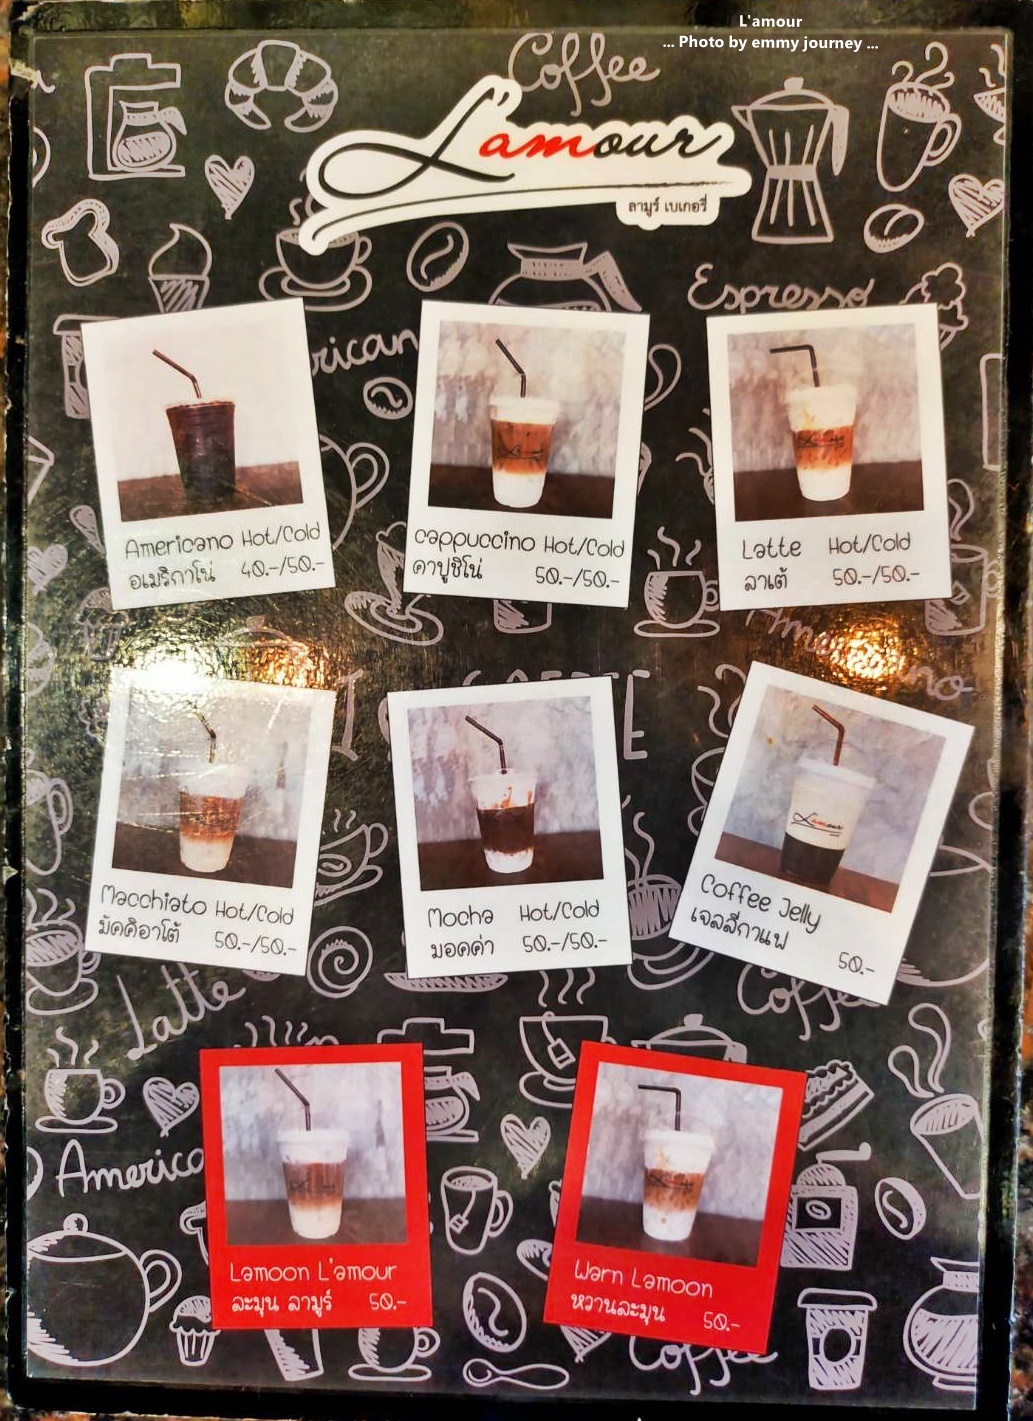 L'amour
... Photo by emmy journey ...
Coffee
L'amour
ลามูร์ เบเกอรี่
Espresso
rican
Americano Hot/Cold
อเมริกาโน่ 40.-/50.-
cappuccino Hot/Cold
คาปูชิโน่ 50.-/50.-
Latte Hot/Cold
ลาเต้ 50.-/50.-
Americano
Macchiato Hot/Cold
มัคคิอาโต้ 50.-/50.-
Mocha Hot/Cold
มอคค่า 50.-/50.-
L'amour
Coffee Jelly
เจลลี่กาแฟ
50.-
Latte
Coffee
Americo
Lamoon L'amour
ละมุน ลามูร์ 50.-
Warn Lamoon
หวานละมุน 50.-
Coffee